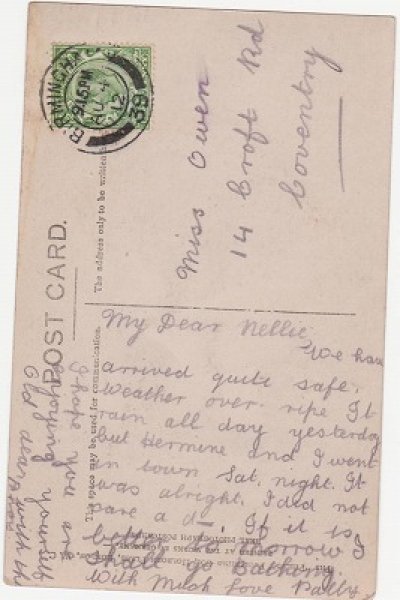 BIRMINGHAM
9.15PM
AU 4
12
39
POST CARD.
The address only to be written
This space may be used for communication.
Miss Owen
14 Croft Rd
Coventry
My Dear Nellie,
We have
arrived quite safe.
Weather over ripe It
rain all day yesterday
but Hermine and I went
in town Sat. night. It
was alright. I did not
care a d—. If it is
better to-morrow I
shall go bathing.
With Much Love
I hope you are
enjoying yourself
Old dear